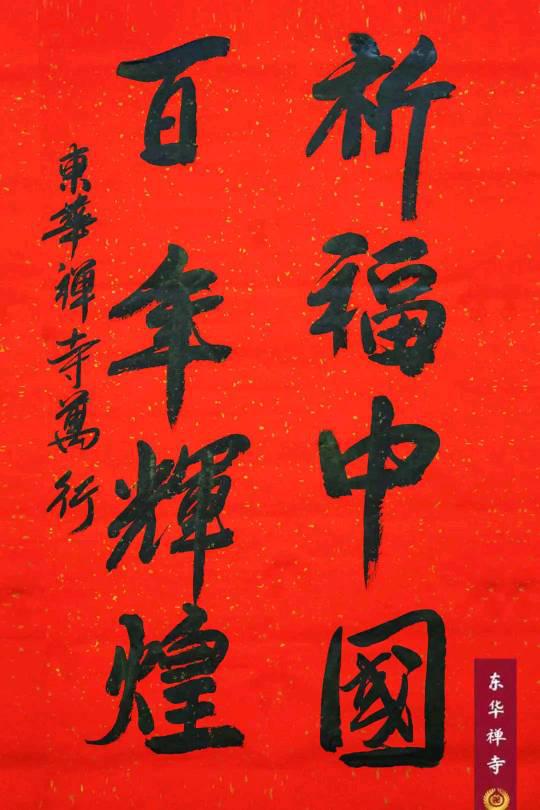 祈福中國
百年輝煌
東華禪寺萬行
东华禅寺